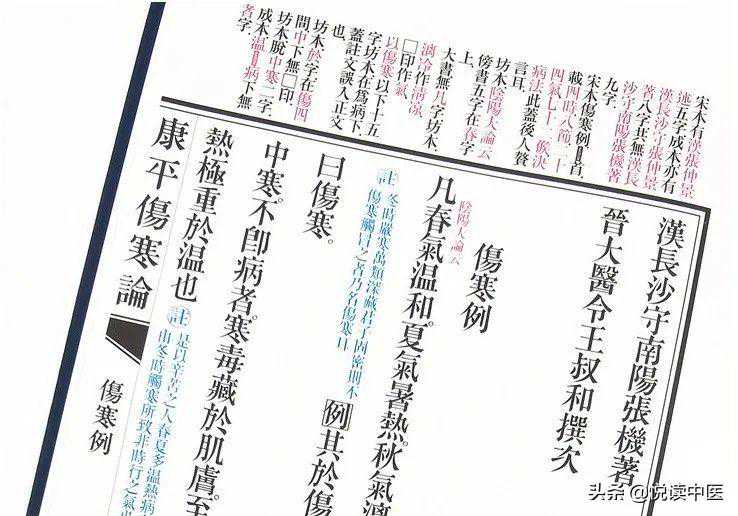 宋本有漢張仲景
述五字成本亦有
漢長沙守張仲景
著八字共無漢長
沙守南陽張機著
九字。
宋本傷寒例首、
載四時八節、二十
四氣七十二候決
病法此蓋後人贅
言耳、
坊本陰陽大論云
傍書五字在春字
上、
大書無凡字坊本、
清冷作清涼、
□印作氣、
以傷寒以下十五
字坊本在為病下
蓋註文誤入正文
也、
坊本於字在傷四
間中下無□印
坊本脫中寒二字、
成本溫病下無
者字、
漢長沙守南陽張機著
晉大醫令王叔和撰次
傷寒例
陰陽大論云
凡春氣溫和。夏氣暑熱。秋氣
註 冬時嚴寒萬類深藏君子固密則不
傷寒觸冒之者乃名傷寒耳
曰傷寒。 例其於傷
中寒。不即病者。寒毒藏於肌膚。至
熱極重於溫也 註 是以辛苦之人春夏多溫熱病
由冬時觸寒所致非時行之氣也
康平傷寒論
傷寒例
头条 @悦读中医